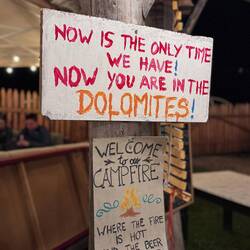 NOW IS THE ONLY TIME
WE HAVE!
NOW YOU ARE IN THE
DOLOMITES!
WELCOME
to our
CAMPFIRE
WHERE THE FIRE
IS HOT
THE BEER